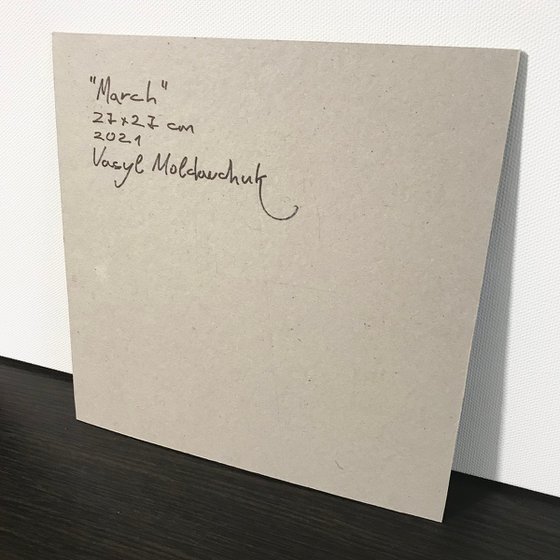 "March"
27x27 cm
2021
Vasyl Moldavchuk